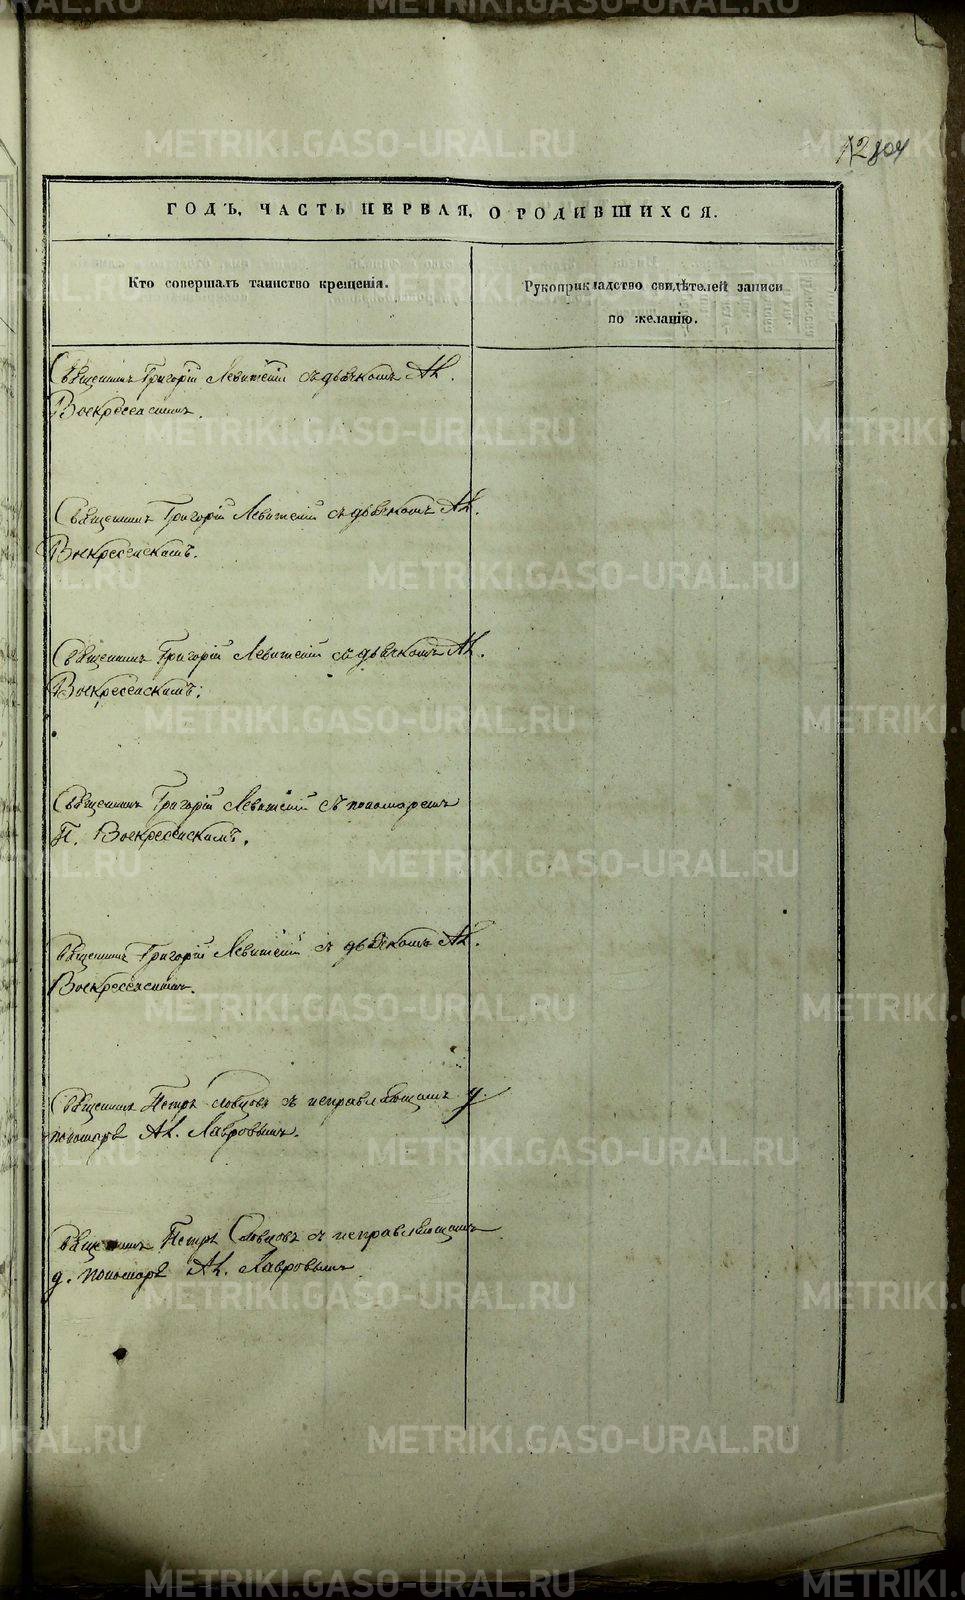 804
ГОДЪ, ЧАСТЬ ПЕРВАЯ, О РОДИВШИХСЯ.
Кто совершалъ таинство крещенія.
Рукоприкладство свидѣтелей записи
по желанію.
Священникъ Григорій Левитскій съ дьячкомъ Ал.
Воскресенскимъ.
Священникъ Григорій Левитскій съ дьячкомъ Ал.
Воскресенскимъ.
Священникъ Григорій Левитскій съ дьячкомъ Ал.
Воскресенскимъ.
Священникъ Григорій Левитскій съ пономаремъ
П. Воскресенскимъ.
Священникъ Григорій Левитскій съ дьячкомъ Ал.
Воскресенскимъ.
Священникъ Петръ Словцовъ съ исправляющимъ д.
пономаря Ал. Лавровымъ.
Священникъ Петръ Словцовъ съ исправляющимъ
д. пономаря Ал. Лавровымъ
METRIKI.GASO-URAL.RU